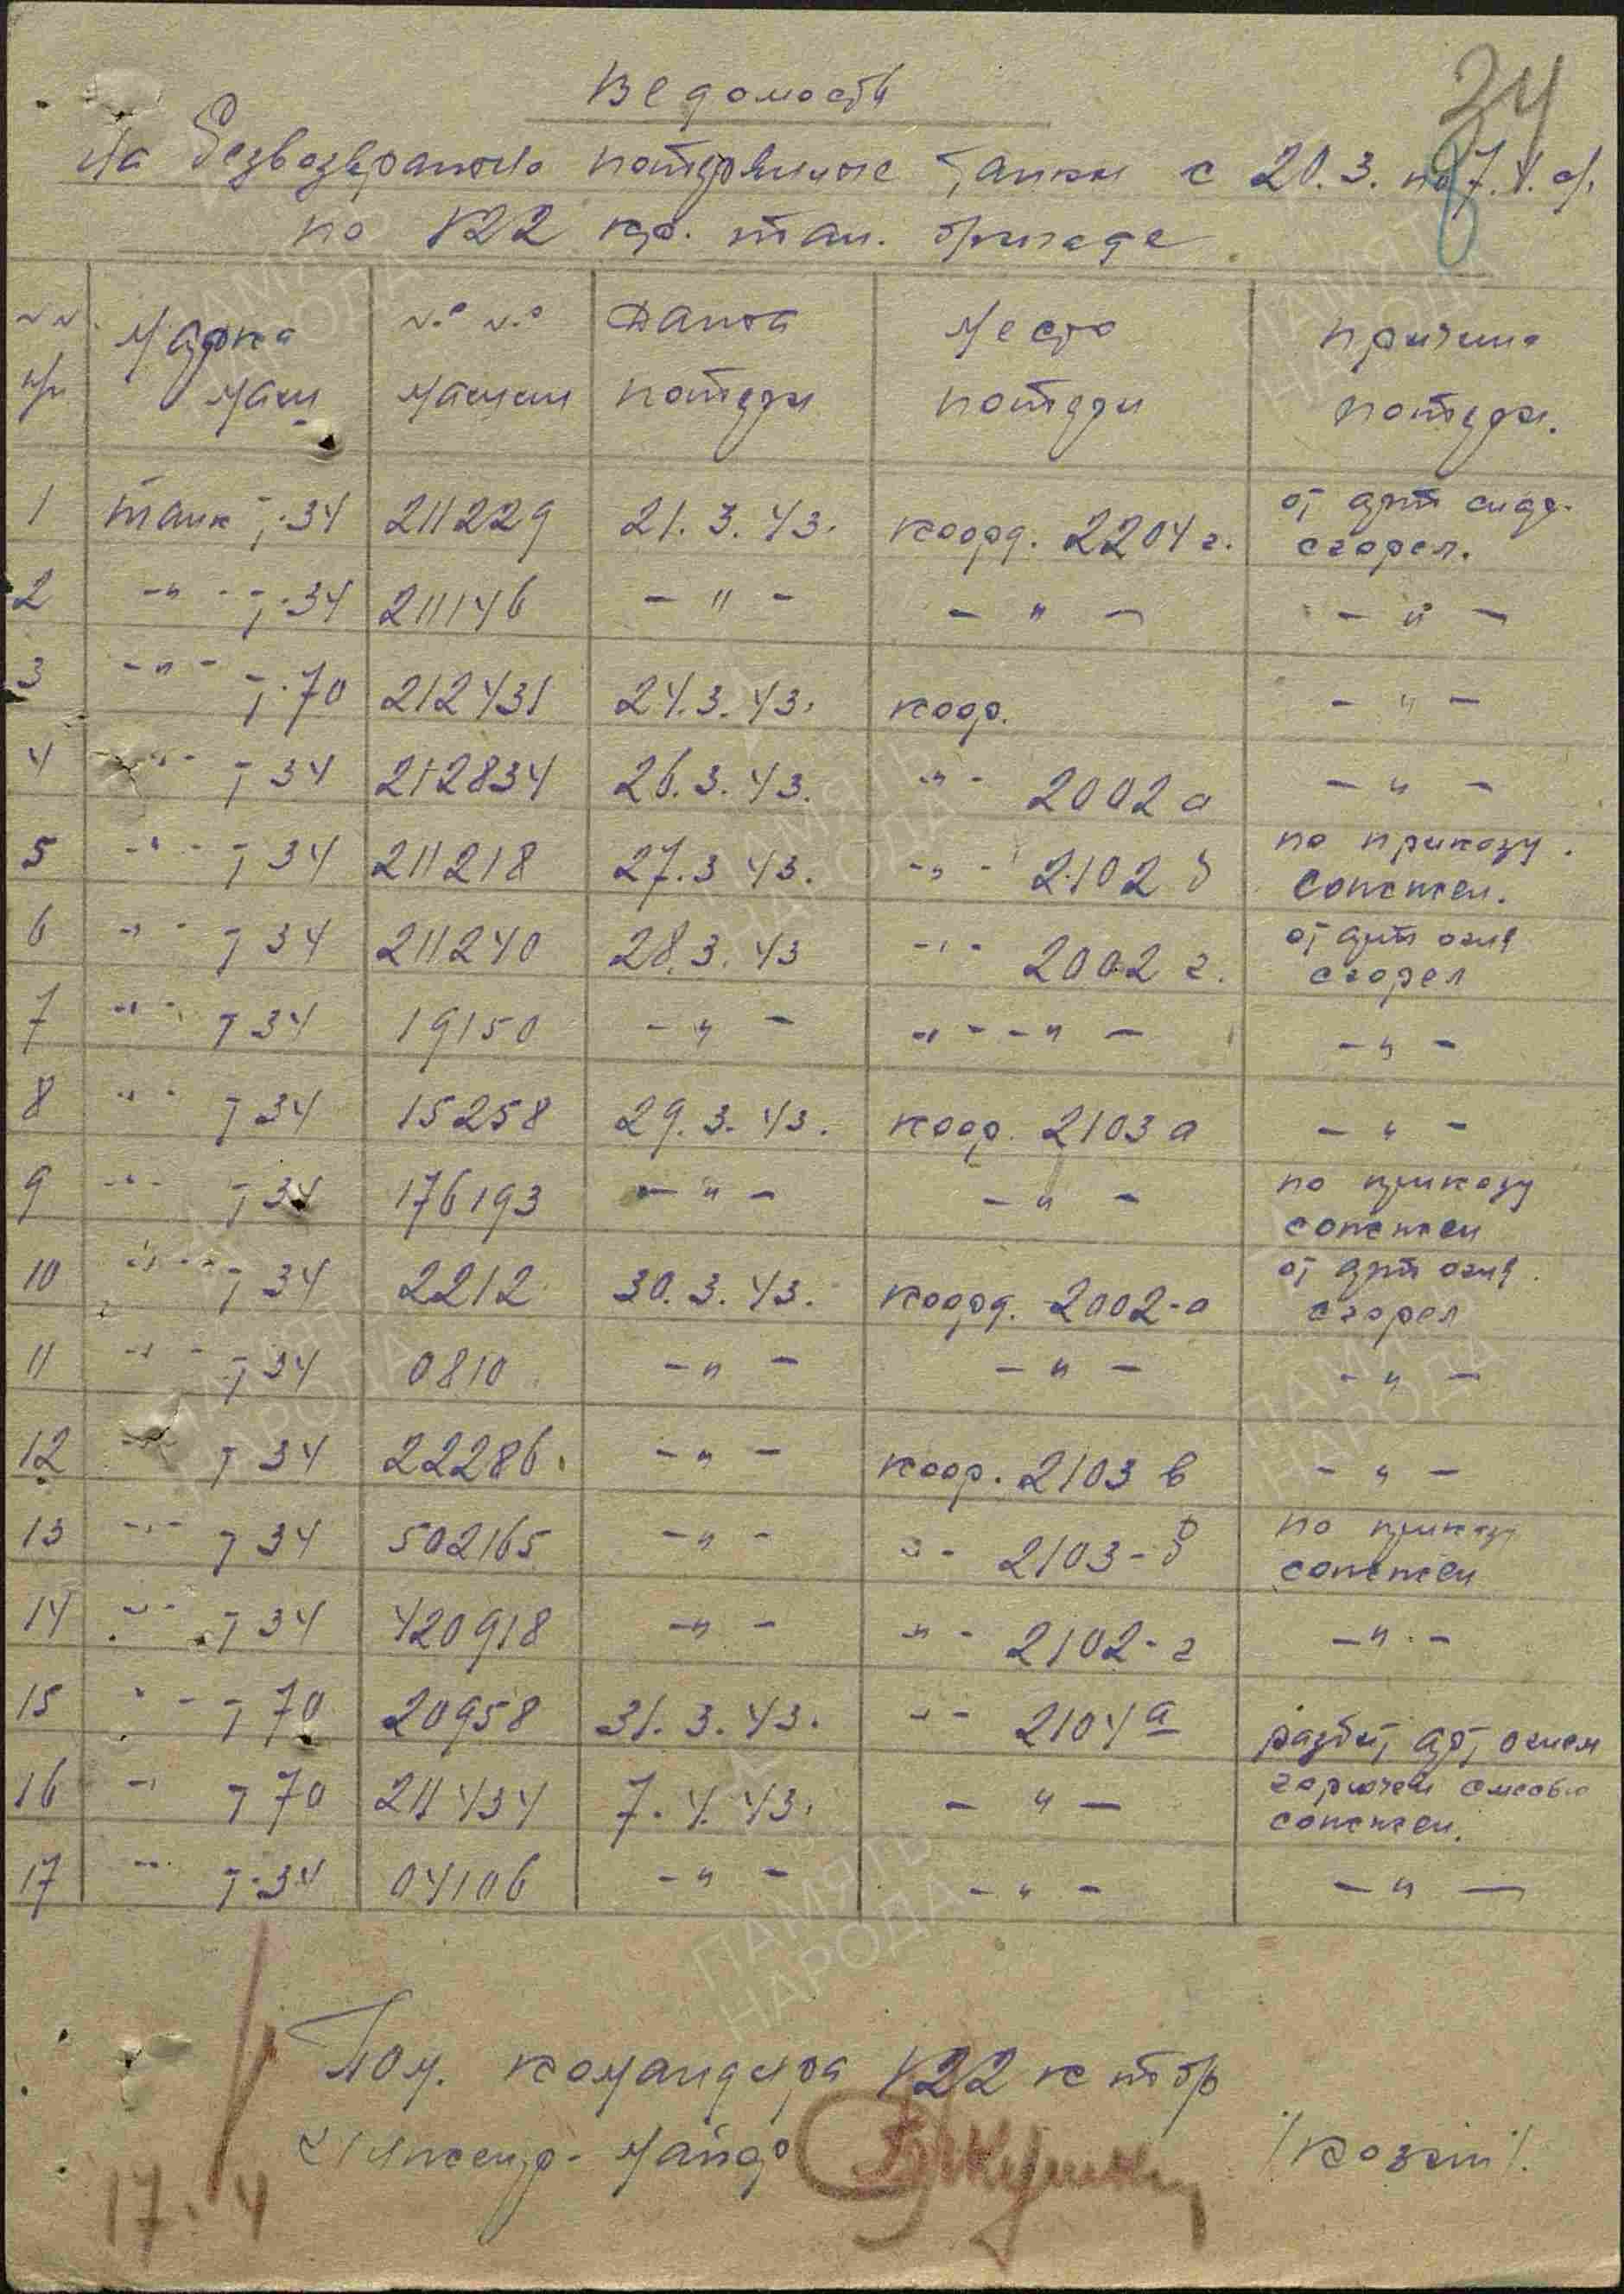 34
Ведомость
На безвозвратно потерянные танки с 20.3. по 7.4. с/г.
по 122 кр. тан. бригаде
№ № п/п | Марка маш | №№ машин | Дата потери | Место потери | Причина потери.
1 | танк Т-34 | 211229 | 21.3.43. | коорд. 2204 г. | от арт снар. сгорел.
2 | -"- Т-34 | 211146 | -"- | -"- | -"-
3 | -"- Т-70 | 212431 | 24.3.43. | коор. | -"-
4 | -"- Т 34 | 212834 | 26.3.43. | -"- 2002 а | -"-
5 | -"- Т 34 | 211218 | 27.3 43. | -"- 2102 б | по приказу сожжен.
6 | -"- Т 34 | 211240 | 28.3.43 | -"- 2002 г. | от арт огня сгорел
7 | -"- Т 34 | 19150 | -"- | -"- -"- | -"-
8 | -"- Т 34 | 15258 | 29.3.43. | коор. 2103 а | -"-
9 | -"- Т 34 | 176193 | -"- | -"- | по приказу сожжен
10 | -"- Т 34 | 2212 | 30.3.43. | коорд. 2002-а | от арт огня сгорел
11 | -"- Т 34 | 0810 | -"- | -"- | -"-
12 | -"- Т 34 | 22286 | -"- | коор. 2103 в | -"-
13 | -"- Т 34 | 502165 | -"- | -"- 2103-б | по приказу сожжен
14 | -"- Т 34 | 420918 | -"- | -"- 2102-г | -"-
15 | -"- Т 70 | 20958 | 31.3.43. | -"- 2104 а | разбит арт огнем
16 | -"- Т 70 | 211434 | 7.4.43. | -"- | горючей смесью сожжен.
17 | -"- Т-34 | 04106 | -"- | -"- | -"-
Пом. командира 122 к тбр
Инженер-майор /Козет/.
17.4
ПАМЯТЬ НАРОДА